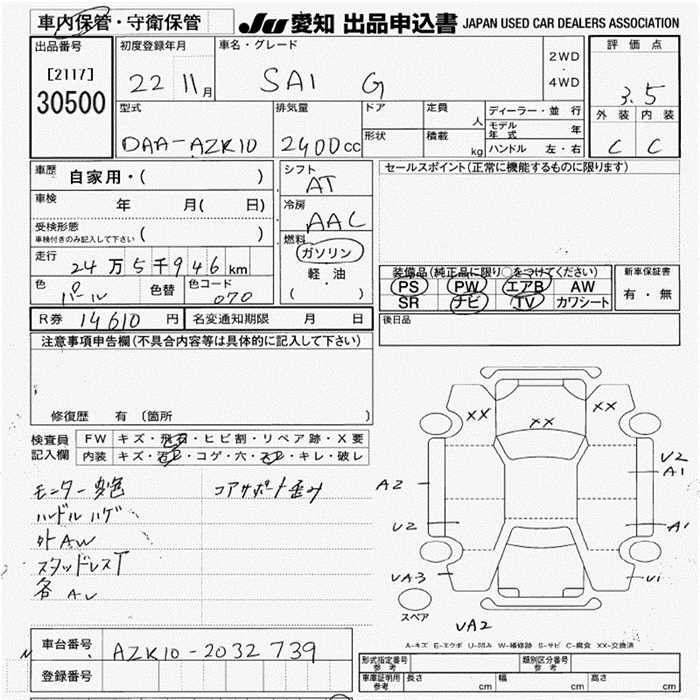 車内保管・守衛保管
JU 愛知 出品申込書 JAPAN USED CAR DEALERS ASSOCIATION
出品番号
[2117]
30500
初度登録年月
22 11月
車名・グレード
SAI G
2WD
・
4WD
評価点
3.5
外装 内装
C C
型式
DAA-AZK10
排気量
2400cc
ドア
形状
定員 人
積載 kg
ディーラー・並行
モデル年式 年
ハンドル 左・右
車歴 自家用・( )
車検 年 月( 日)
受検形態
車検付きのみ記入して下さい ( )
走行
24万5千946km
色 パール 色替 色コード 070
シフト
AT
冷房
AAC
燃料
ガソリン
軽・油
( )
セールスポイント(正常に機能するものに限ります)
装備品(純正品に限り○をつけてください)
PS PW エアB AW
SR ナビ TV カワシート
新車保証書
有・無
後日品
R券 14610円 名変通知期限 月 日
注意事項申告欄(不具合内容等は具体的に記入して下さい)
修復歴 有 〔箇所 〕
検査員記入欄
FW キズ・飛石・ヒビ割・リペア跡・X要
内装 キズ・汚レ・コゲ・穴・スレ・キレ・破レ
モニター変色 コアサポート歪み
ハンドルハゲ
外AW
スタッドレスT
各AU
XX XX XX
A2
U2
UA3
U2
A1
A1
U1
スペア
UA2
A-キズ E-エクボ U-凹み W-補修跡 S-サビ C-腐食 XX-交換済
車台番号 AZK10-2032739
登録番号
型式指定番号 参考 類別区分番号 参考
車庫証明用 参考 長さ cm 幅 cm 高さ cm